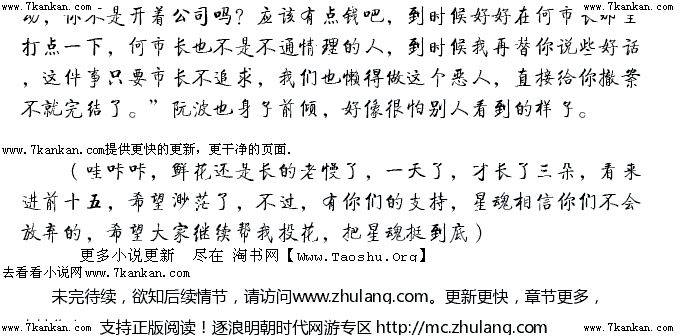 www.7kankan.com
www.7kankan.com
动,你不是开着公司吗?应该有点钱吧,到时候好好在何市长那里
打点一下,何市长也不是不通情理的人,到时候我再替你说些好话
,这件事只要市长不追求,我们也懒得做这个恶人,直接给你撤案
不就完结了。”阮波也身子前倾,好像很怕别人看到的样子。
www.7kankan.com提供更快的更新,更干净的页面.
(哇咔咔,鲜花还是长的老慢了,一天了,才长了三朵,看来
进前十五,希望渺茫了,不过,有你们的支持,星魂相信你们不会
放弃的,希望大家继续帮我投花,把星魂挺到底)
更多小说更新 尽在 淘书网【Www.Taoshu.Org】
去看看小说网www.7kankan.com
未完待续,欲知后续情节,请访问www.zhulang.com。更新更快,章节更多,
支持正版阅读!逐浪明朝时代网游专区 http://mc.zhulang.com/
www.7kankan.com
www.7kankan.com